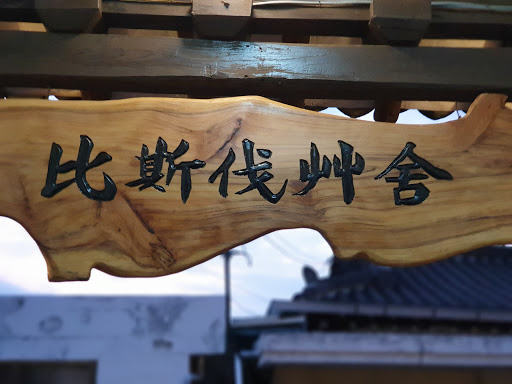 比斯伐艸舍